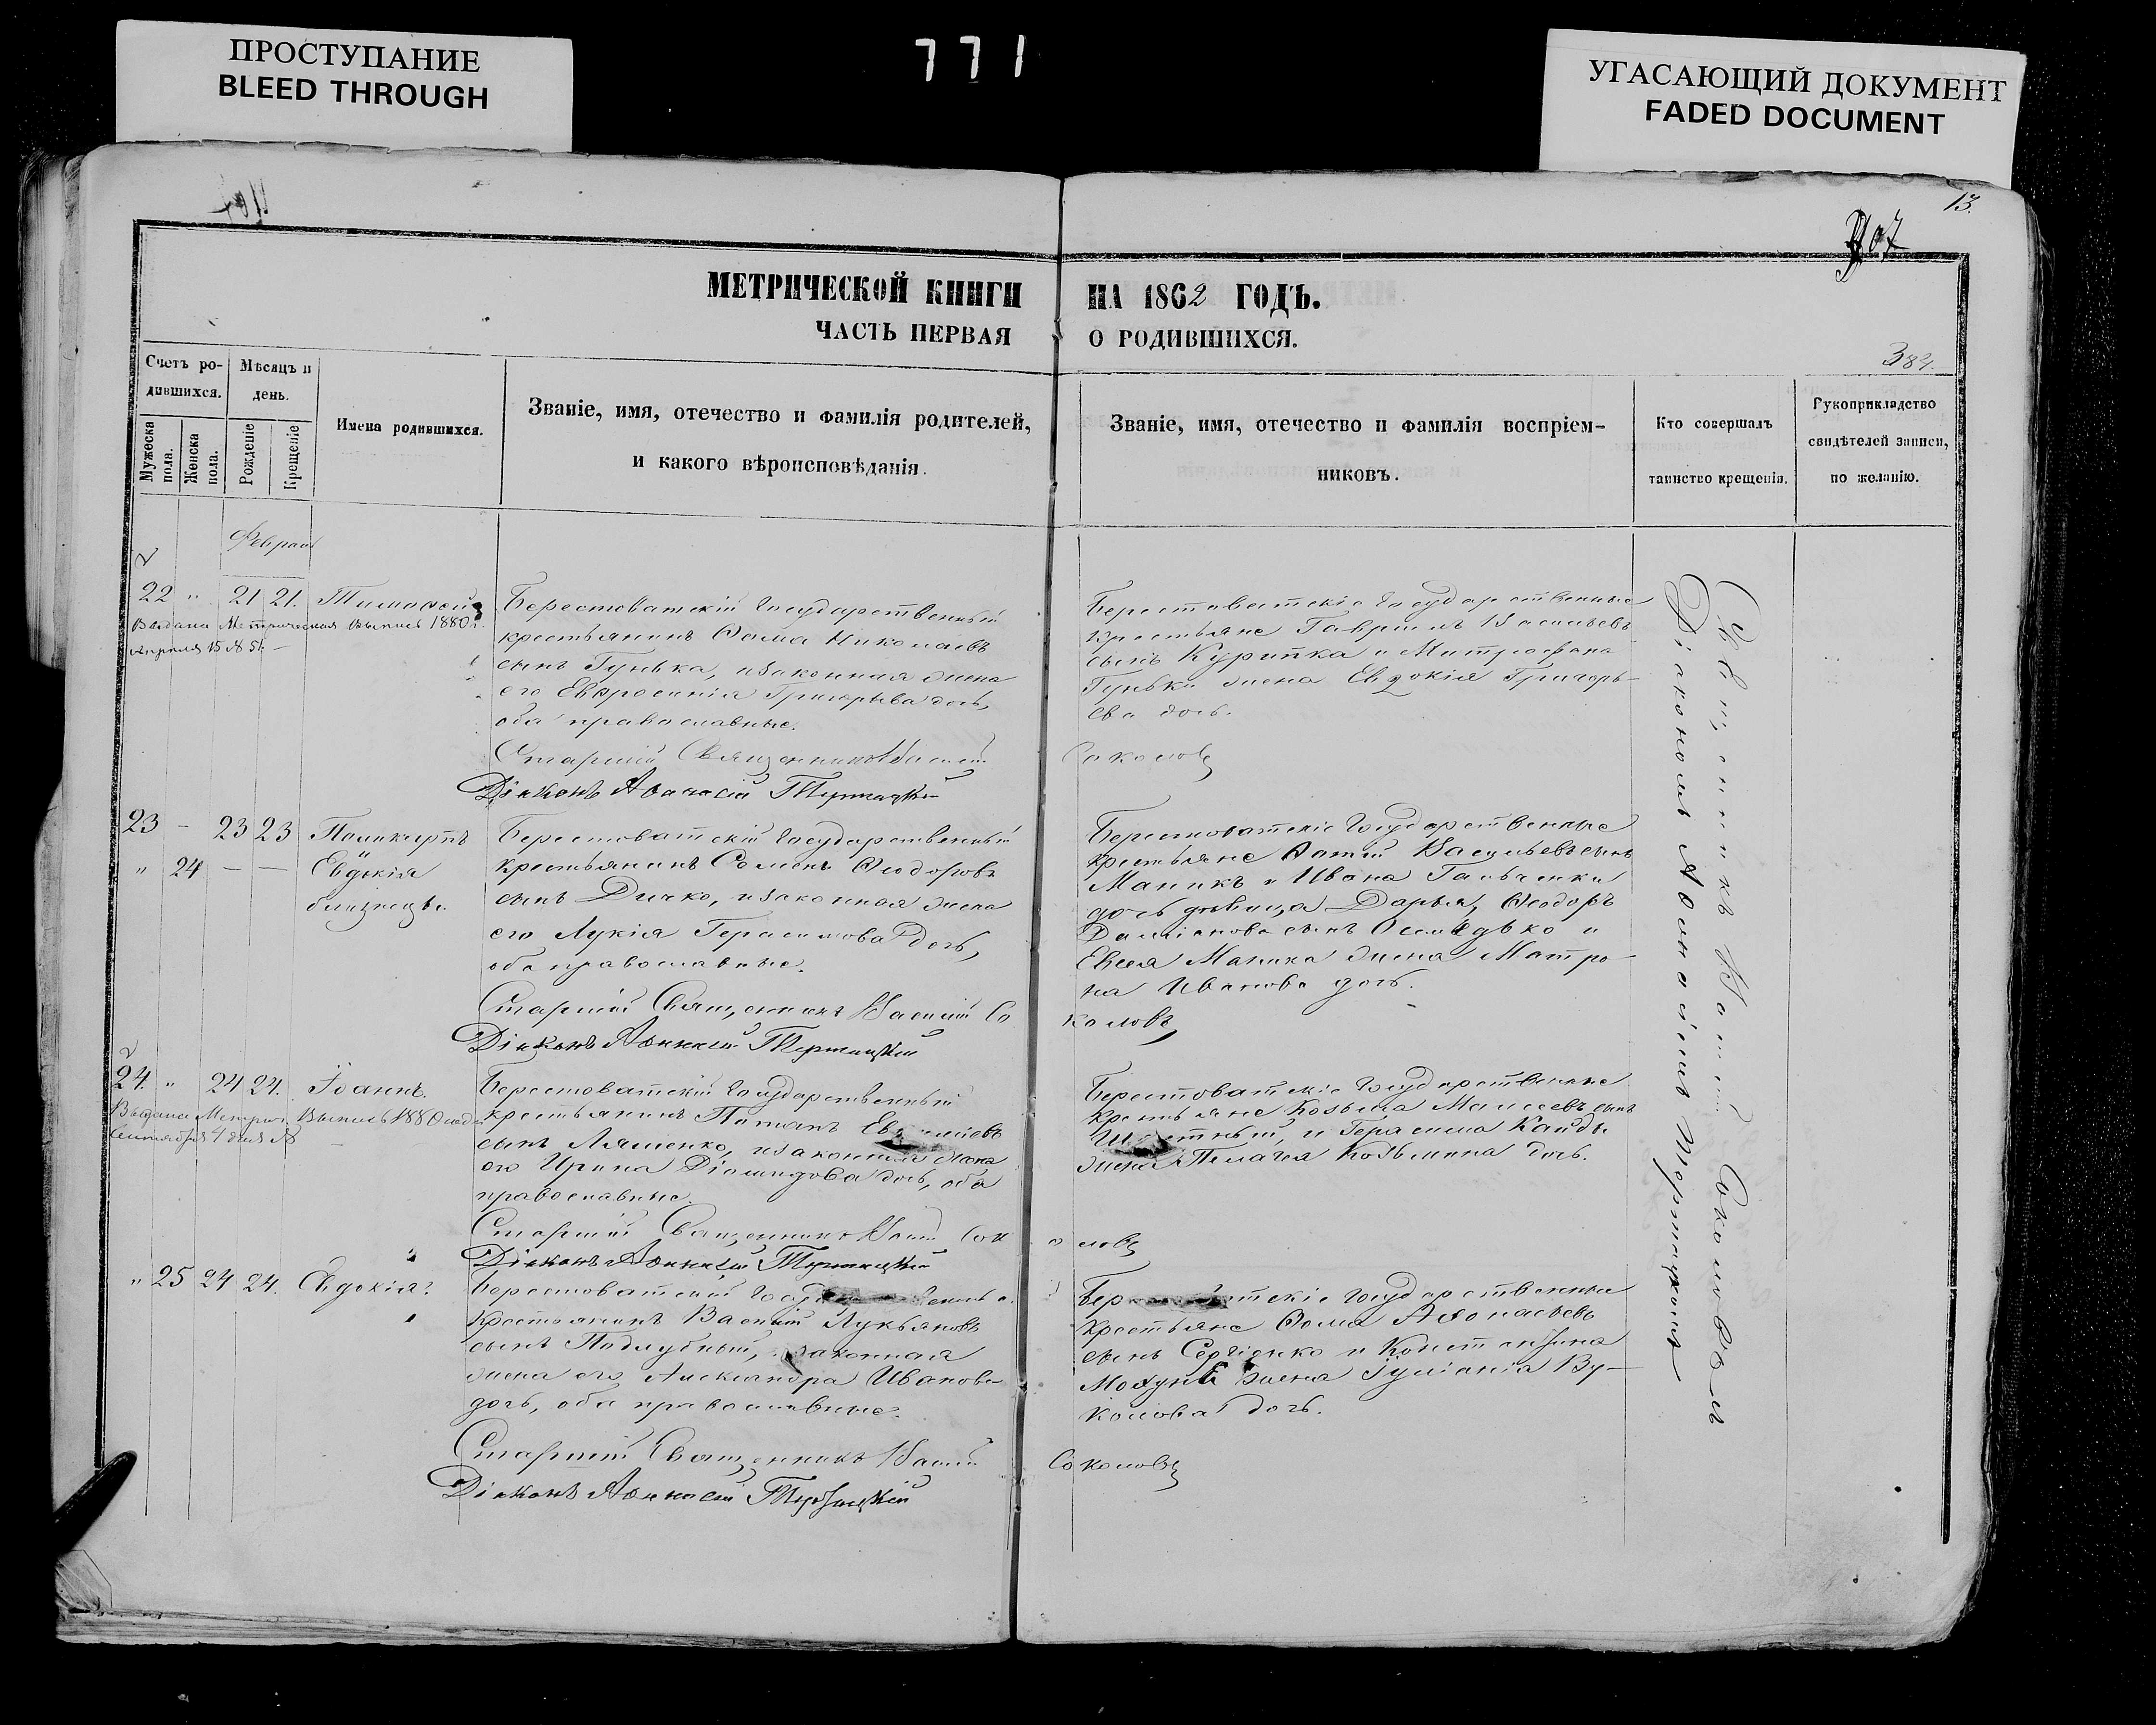 ПРОСТУПАНИЕ
BLEED THROUGH
771
УГАСАЮЩИЙ ДОКУМЕНТ
FADED DOCUMENT
13.
МЕТРИЧЕСКОЙ КНИГИ НА 1862 ГОДЪ.
ЧАСТЬ ПЕРВАЯ О РОДИВШИХСЯ.
Счетъ ро-
дившихся.
Мѣсяцъ и
день.
Мужеска
пола.
Женска
пола.
Рожденіе
Крещеніе
Имена родившихся.
Званіе, имя, отечество и фамилія родителей,
и какого вѣроисповѣданія.
Званіе, имя, отечество и фамилія воспріем-
никовъ.
Кто совершалъ
таинство крещенія.
Рукоприкладство
свидѣтелей записи,
по желанію.
Февраль
22 " 21 21. Тимоѳей
Выдана Метрическая выпись 1880 г.
Апреля 15 № 51.
Берестоватскій Государственный
крестьянинъ Ѳома Николаевъ
сынъ Гунька, изаконная жена
его Евфросинія Григорьева дочь,
оба православные.
Старшій Священникъ Василій
Діаконъ Аѳанасій
Берестоватскіе Государственные
крестьяне Гавріилъ Васильевъ
сынъ Курипка и Митрофана
Гуньки жена Евдокія Григорь-
ева дочь.
Соколовъ
23 - 23 23 Поликарпъ
" 24 — — Евдокія
близнецы.
Берестоватскій Государственный
крестьянинъ Семенъ Ѳеодоровъ
сынъ Дичко, изаконная жена
его Лукія Герасимова дочь,
оба православные.
Старшій Священникъ Василій Со
Діаконъ Аѳанасій
Берестоватскіе Государственные
крестьяне Фотій Васильевъ сынъ
Маникъ и Ивана Гальченки
дочь дѣвица Дарья, Ѳеодоръ
Даміановъ сынъ и
Евсея Маника жена Матро-
на Иванова дочь.
коловъ
24. " 24 24. Іоаннъ.
Выдана Метрич. выпись 1880 года
Сентября 4 дня №
Берестоватскій Государственный
крестьянинъ Потапъ
сынъ Ляшенко, изаконная жена
его Ирина Діомидова дочь, оба
православные.
Старшій Священникъ Васил Сок
Діаконъ Аѳанасій
Берестоватскіе Государственные
крестьяне Козьма Моисеевъ сынъ
и Герасима Кайды
жена Пелагія Козьмина дочь.
оловъ
" 25 24 24. Евдокія
Берестоватскій
крестьянинъ Василій Лукьяновъ
сынъ Поддубный, изаконная
жена его Александра Иванова
дочь, оба православные.
Старшій Священникъ Василій
Діаконъ Аѳанасій
Государственные
крестьяне Ѳома Аѳанасьевъ
сынъ Сергіенко и Константина
Мохуни жена Іуліанія Ву-
колова дочь.
Соколовъ
Священникъ Василій Соколовъ съ
Діакономъ Аѳанасіемъ